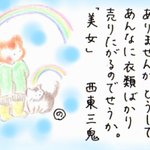 ありませんが どうして
あんなに衣類ばかり
売りたがるのでせうか。
「美女」　西東三鬼
の